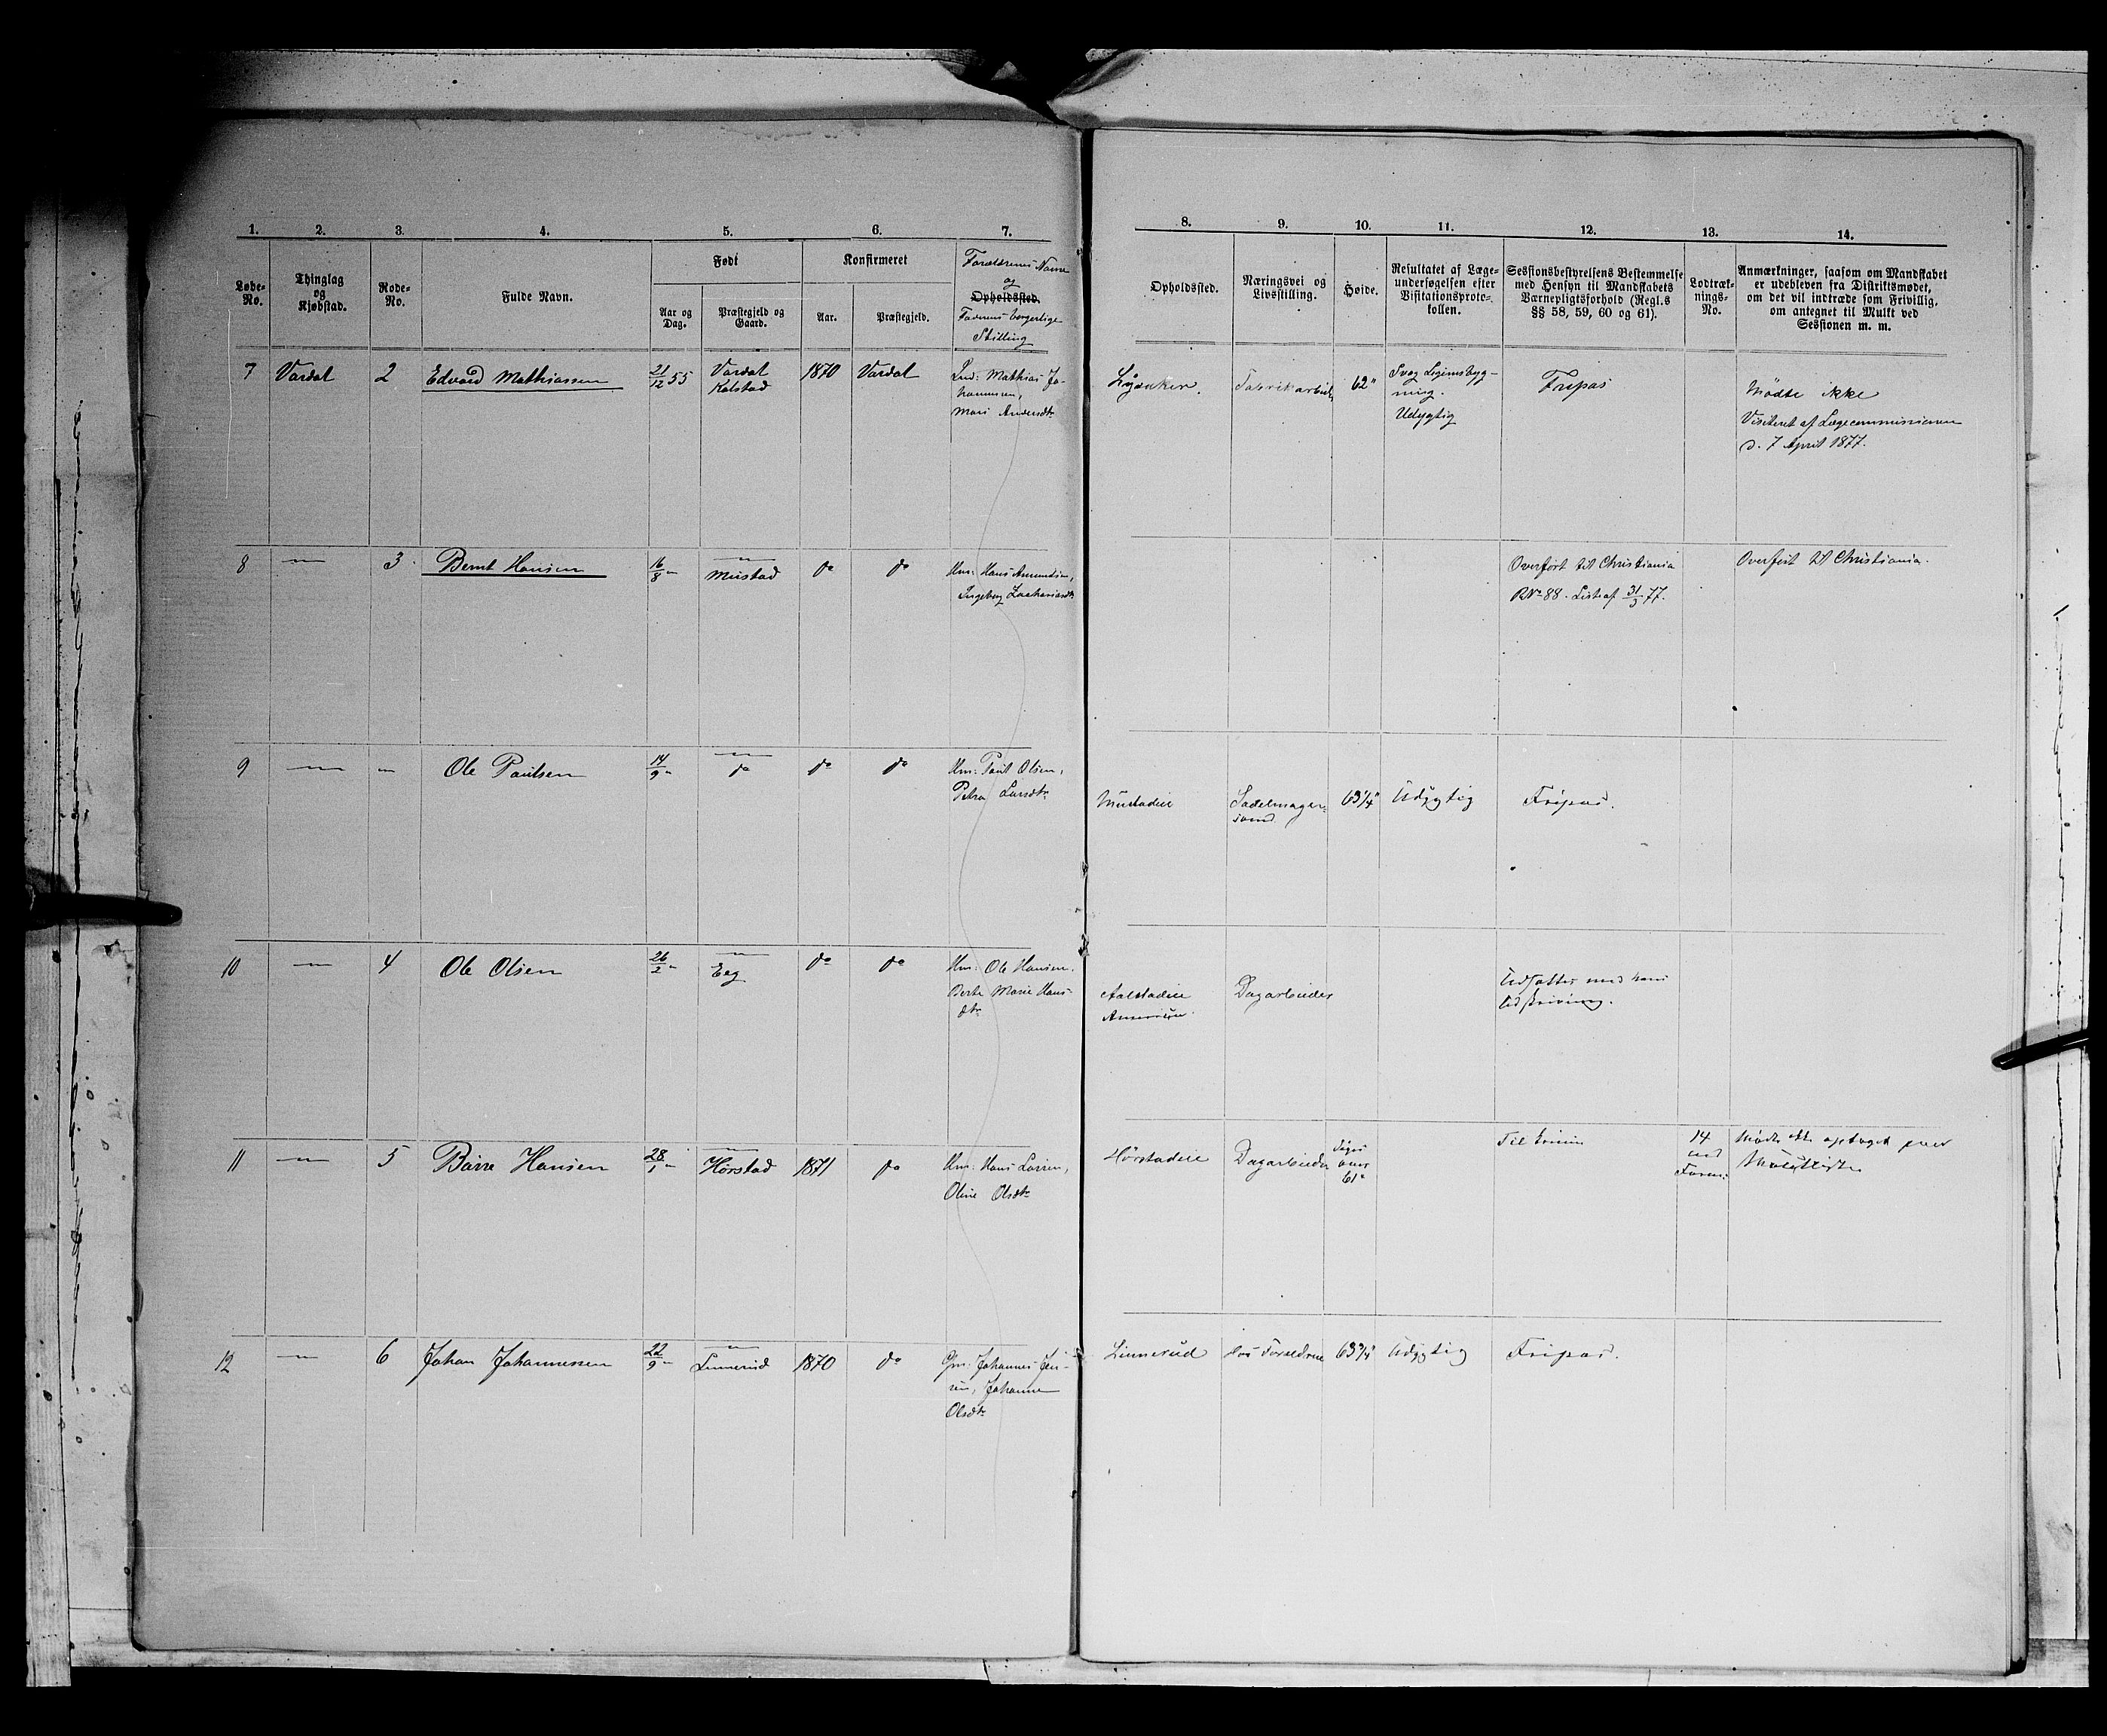 1. 2. 3. 4. 5. 6. 7.
Løbe-No.
Thinglag og Kjøbstad.
Rode-No.
Fulde Navn.
Født
Aar og Dag.
Præstegjeld og Gaard.
Konfirmeret
Aar.
Præstegjeld.
Forældrenes Navne
og
Opholdssted.
Faderens borgerlige
Stilling
7 Vardal 2 Edvard Mathiassen 21/12 55 Vardal Kolstad 1870 Vardal Ind: Mathias Jo-
hannesen,
Mari Andersdtr
8 — 3 Bernt Hansen 16/8 " — Mustad do do Hm: Hans Amundsen,
Ingeborg Zachariasdtr
9 — " Ole Paulsen 14/9 " — do do do Hm: Paul Olsen,
Petra Larsdtr
10 — 4 Ole Olsen 26/2 " — Eeg do do Hm: Ole Hansen.
Berte Marie Hans-
dtr
11 — 5 Børre Hansen 28/1 " — Hørstad 1871 do Hm: Hans Larsen,
Oline Olsdtr
12 — 6 Johan Johannessen 22/9 " — Linnerud 1870 do Gm: Johannes Jen-
sen, Johanne
Olsdtr
8. 9. 10. 11. 12. 13. 14.
Opholdssted.
Næringsvei og
Livsstilling.
Høide.
Resultatet af Læge-
undersøgelsen efter
Visitationsproto-
kollen.
Sessionsbestyrelsens Bestemmelse
med Hensyn til Mandskabets
Værnepligtsforhold (Regl.s
§§ 58, 59, 60 og 61).
Lodtræk-
nings-
No.
Anmærkninger, saasom om Mandskabet
er udebleven fra Distriktsmødet,
om det vil indtræde som Frivillig,
om antegnet til Mulkt ved
Sessionen m. m.
Lysaker. Fabrikarbeider 62" Svag Legemsbyg-
ning.
Udygtig
Fripas
Mødte ikke
Visiteret af Lægecommissionen
d. 7 April 1877.
Overført til Christiania
RNo 88. Liste af 31/3 77.
Overført til Christiania.
Mustadeie Sadelmager-
svend.
63 1/4" Udygtig Fripas.
Aalstadeie
Amerika.
Dagarbeider
Udsattes med hans
Udskrivning.
Hørstadeie Dagarbeider
Siges
over
61"
14
Linnerud Hos Forældrene 63 3/4" Udygtig Fripas.